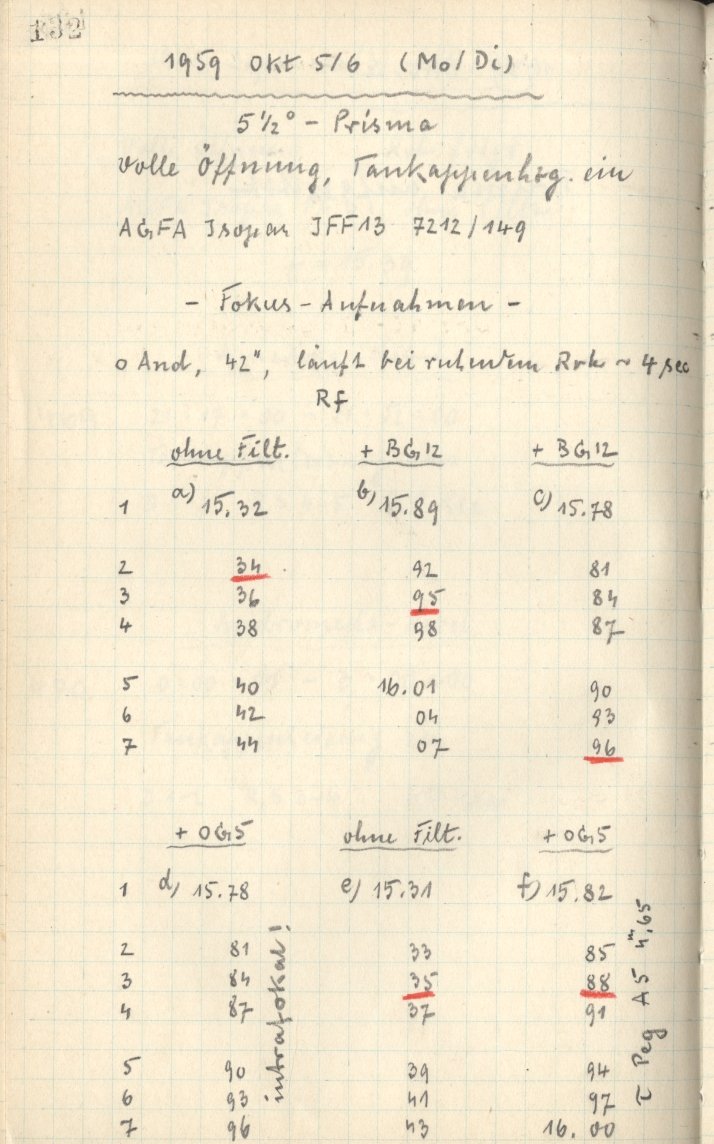 132
1959 Okt 5/6 (Mo/Di)
5 1/2° - Prisma
Volle Öffnung, Taukappenhzg. ein
AGFA Isopan IFF13 7212/149
- Fokus - Aufnahmen -
o And, 42", läuft bei ruhendem ~ 4 sec
Rf
ohne Filt. + BG12 + BG12
1 a) 15.32 b) 15.89 c) 15.78
2 34 92 81
3 36 95 84
4 38 98 87
5 40 16.01 90
6 42 04 93
7 44 07 96
+ OG5 ohne Filt. + OG5
1 d) 15.78 e) 15.31 f) 15.82
2 81 33 85
3 84 35 88
4 87 37 91
5 90 39 94
6 93 41 97
7 96 43 16.00
intrafokal!
τ Peg A5 4m,65